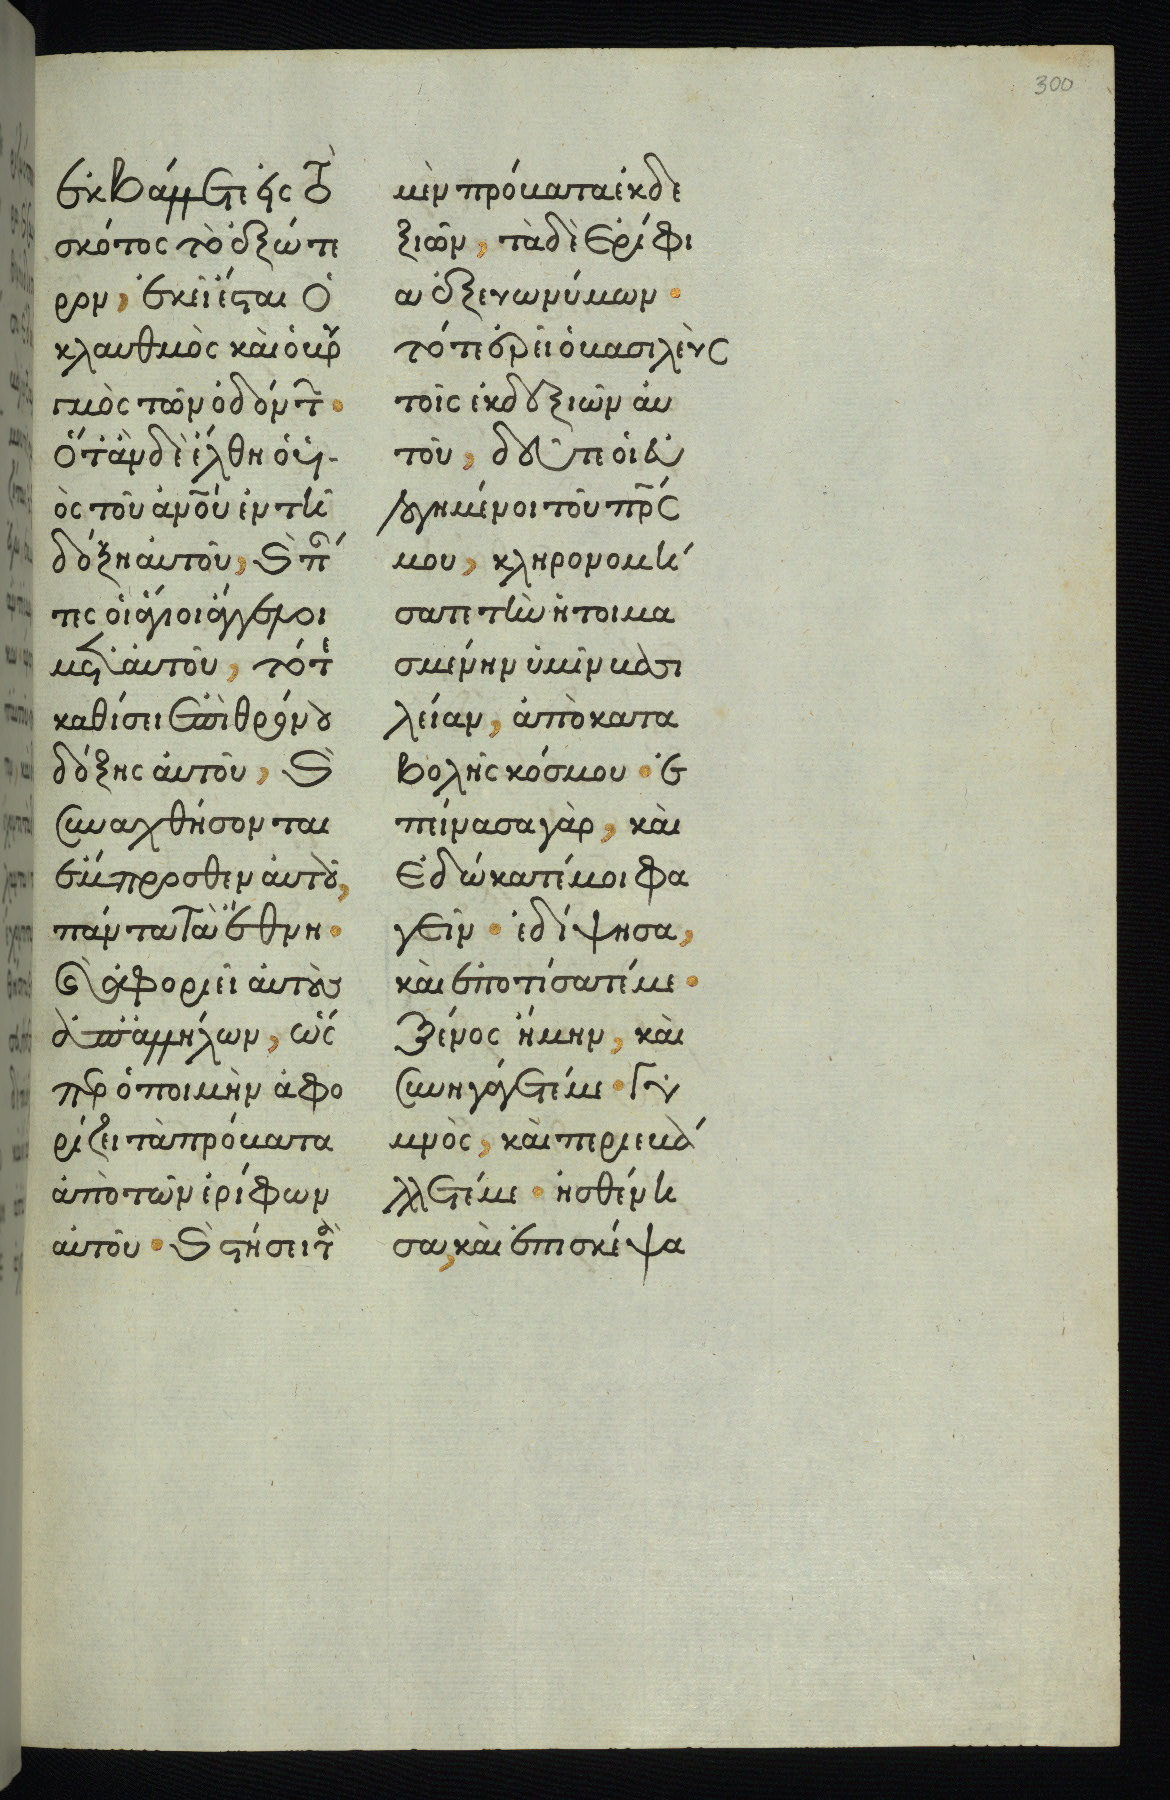 300
ἐκβάλλετε εἰς τὸ
σκότος τὸ ἐξώτε
ρον, ἐκεῖ ἔσται ὁ
κλαυθμὸς καὶ ὁ βρυ
γμὸς τῶν ὀδόντων.
Ὅτἂν δὲ ἔλθη ὁ υἱ-
ὸς τοῦ ἀνου ἐν τῆ
δόξη αὐτοῦ, καὶ πάν
τες οἱ ἅγιοι ἄγγελοι
μετ' αὐτοῦ, τότε
καθίσει ἐπὶ θρόνου
δόξης αὐτοῦ, καὶ
συναχθήσονται
ἔμπροσθεν αὐτοῦ,
πάντα τὰ ἔθνη.
καὶ ἀφοριεῖ αὐτοὺς
ἀπ' ἀλλήλων, ὥσ
περ ὁ ποιμὴν ἀφο
ρίζει τὰ πρόβατα
ἀπὸ τῶν ἐρίφων
αὐτοῦ. καὶ στήσει τὰ
μὲν πρόβατα ἐκ δε
ξιῶν, τὰ δὲ ἐρίφι
α ἐξ εὐωνύμων.
τότε ἐρεῖ ὁ βασιλεὺς
τοῖς ἐκ δεξιῶν αὐ
τοῦ, δεῦτε οἱ εὐ
λογημένοι τοῦ πρς
μου, κληρονομή
σατε τὴν ἡτοιμα
σμένην ὑμῖν βασι
λείαν, ἀπὸ κατα
βολῆς κόσμου. ἐ
πείνασα γὰρ, καὶ
ἐδώκατέ μοι φα
γεῖν. ἐδίψησα,
καὶ ἐποτίσατέ με.
ξένος ἤμην, καὶ
συνηγάγετέ με. γυ
μνὸς, καὶ περιεβά
λλετέ με. ἠσθένη
σα, καὶ ἐπισκέψα